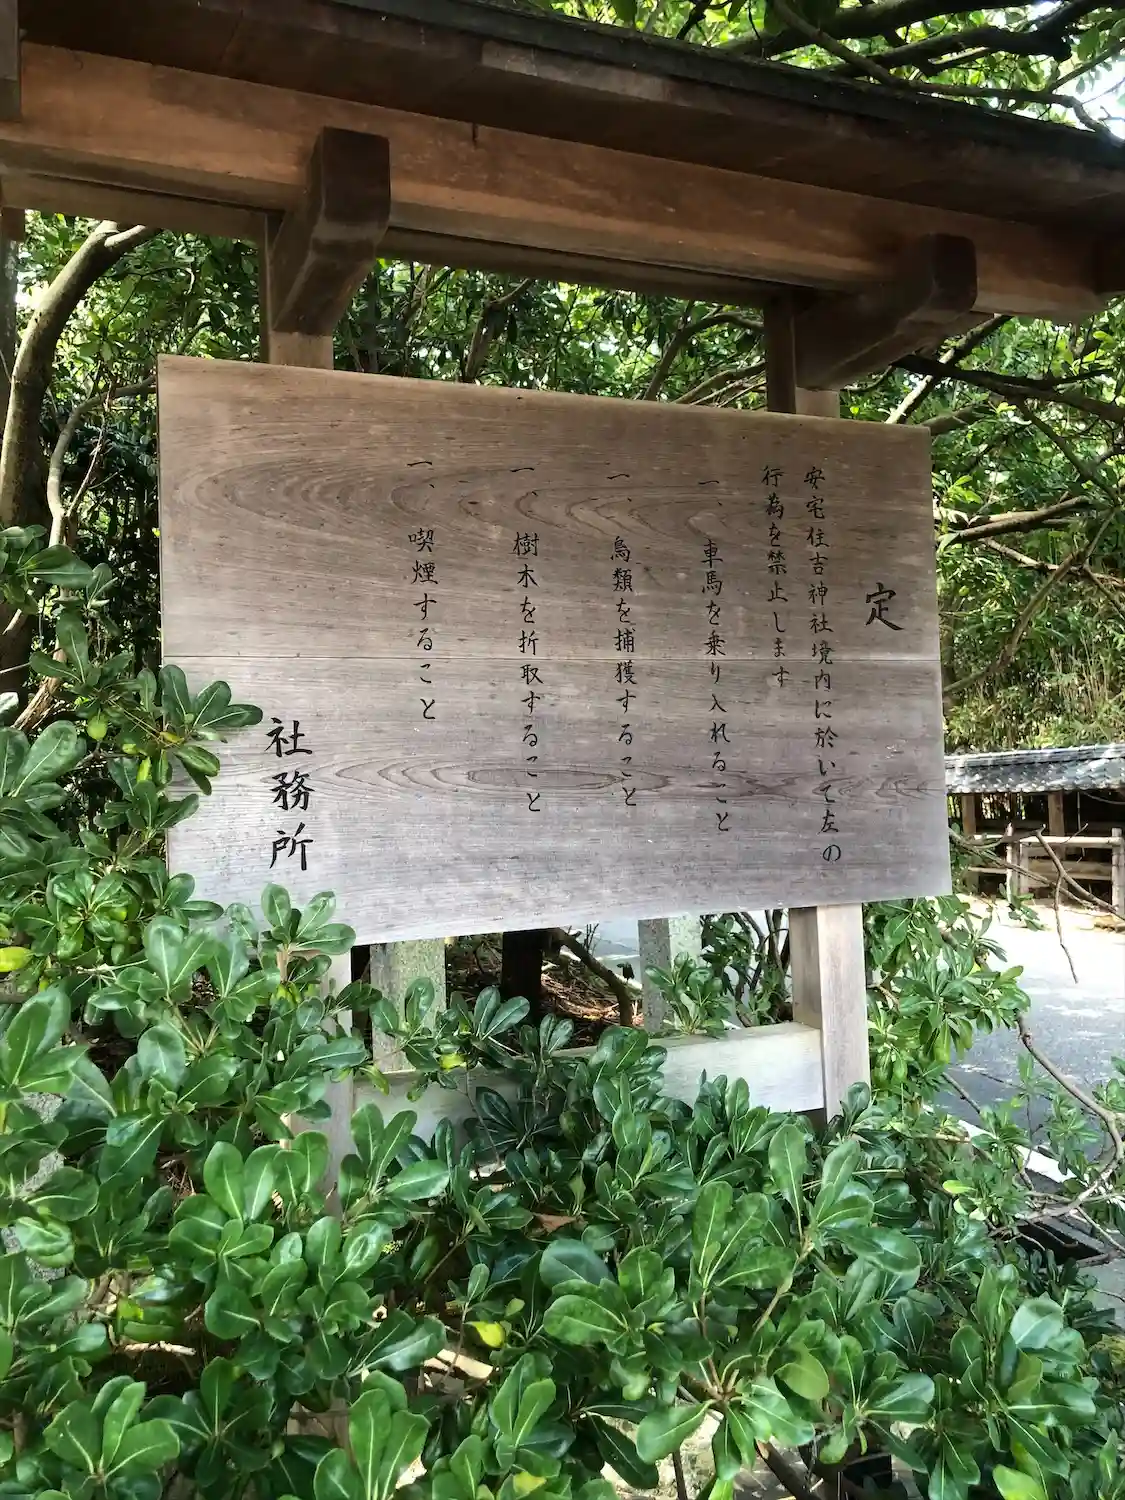 定
安宅住吉神社境内に於いて左の
行為を禁止します
一、車馬を乗り入れること
一、鳥類を捕獲すること
一、樹木を折取すること
一、喫煙すること
社務所